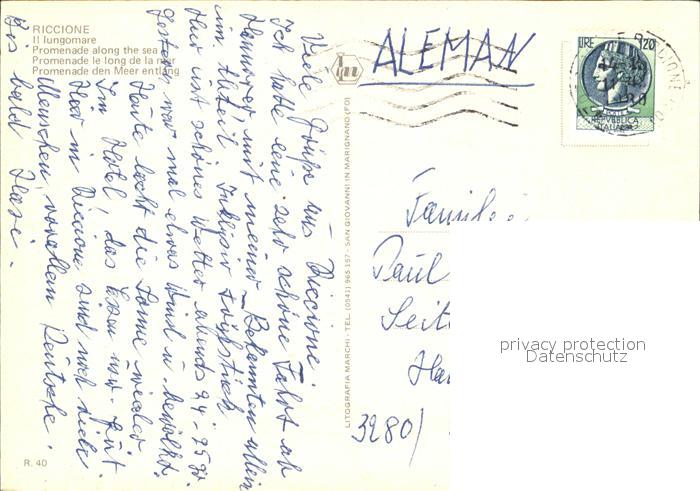 RICCIONE
Il lungomare
Promenade along the sea
Promenade le long de la mer
Promenade den Meer entlang
Viele Grüße aus Riccione.
Ich hatte eine sehr schöne Fahrt ab
Hannover, mit meiner Bekannten allein
im Abteil, Frühstück
Hier ist schönes Wetter abends 24-25 gr.
Gestern war mal etwas Wind u. bewölkt.
Heute lacht die Sonne wieder
Im Hotel, das Essen war gut
Hier in Riccione sind noch viele
Menschen, vor allem Deutsche.
Bis bald
R. 40
LITOGRAFIA MARCHI - TEL. (0541) 965.157 - SAN GIOVANNI IN MARIGNANO (FO)
ALEMAN
LIRE 120
REPUBBLICA
ITALIANA
RICCIONE
Familie
Paul
3280/
privacy protection
Datenschutz